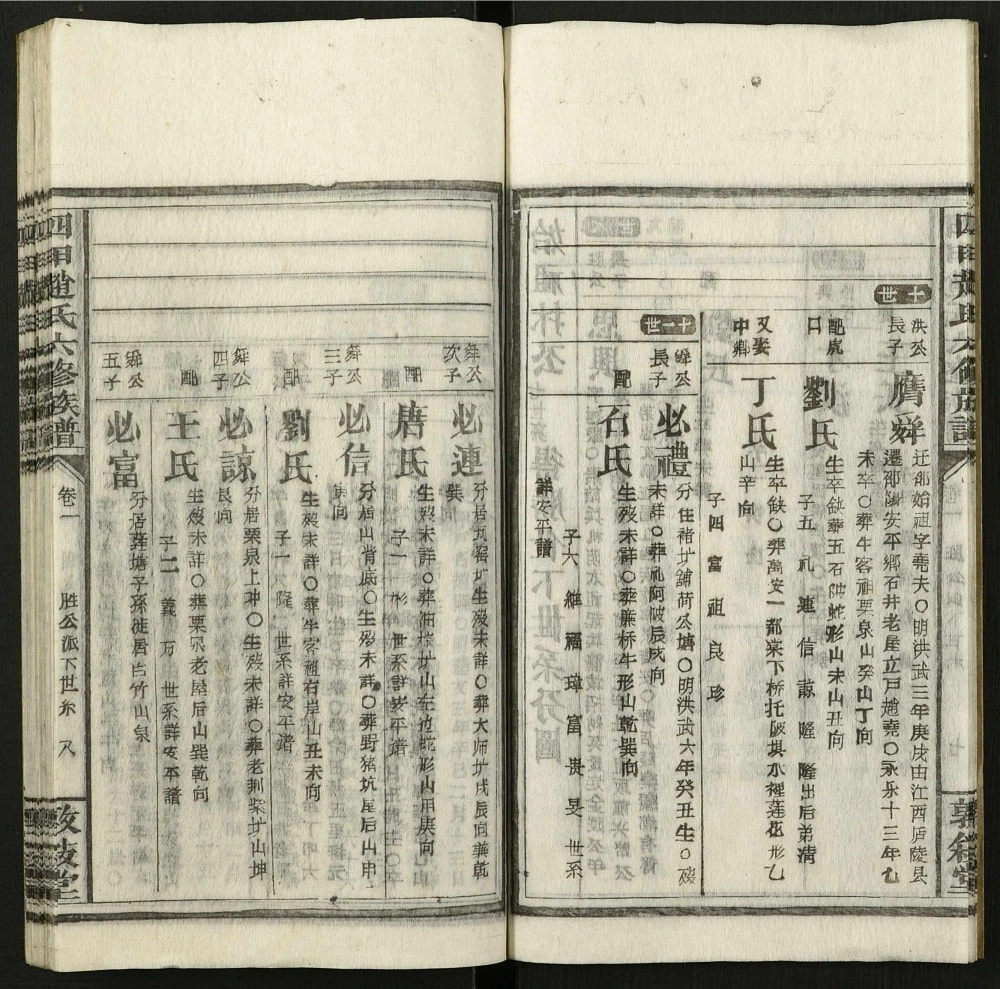 四甲趙氏六修族譜
敦敘堂
十世
洪公
長子
膺舜
迁邵始祖字堯夫〇明洪武三年庚戌由江西庐陵县
遷邵陽安平鄉石井老屋立戶趙堯〇永乐十三年乜
未卒〇葬牛客祖栗泉山癸山丁向
配虎
口
劉氏
生卒缺葬五石冲蛇形山未山丑向
子五 礼 連 信 諒 隆 隆出后弟清
又娶
中鄉
丁氏
生卒缺〇葬萬安一都棠下桥托陂其水裡莲花形乙
山辛向
子四 富 祖 良 珍
十一世
舜公
長子
必禮
分住褚圢鋪荷公塘〇明洪武六年癸丑生〇殁
未詳〇葬礼阿陂辰戌向
配
石氏
生殁未詳〇葬廉桥牛形山乾巽向
子六 維 福 瑋 富 贵 旻 世系
詳安平譜
舜公
次子
必連
分居 生殁未詳〇葬大师圢戌辰向
巽向
配
唐氏
生殁未詳〇葬 山东边蛇形山甲庚向
子一 彬 世系詳安平譜
舜公
三子
必信
分居山背底〇生殁未詳〇葬野猪坑屋后山申
寅向
配
劉氏
生殁未詳〇葬牛客祖右岸山丑未向
子一 隆 世系詳安平譜
舜公
四子
必諒
分居栗泉上冲〇生殁未詳〇葬老荆柴圢山坤
艮向
配
王氏
生殁未詳〇葬栗泉老屋后山巽乾向
子二 義 万 世系詳安平譜
舜公
五子
必富
分居 塘子孫徙居白竹山泉
四甲趙氏六修族譜
卷一
胜公派下世系
八
敦敘堂